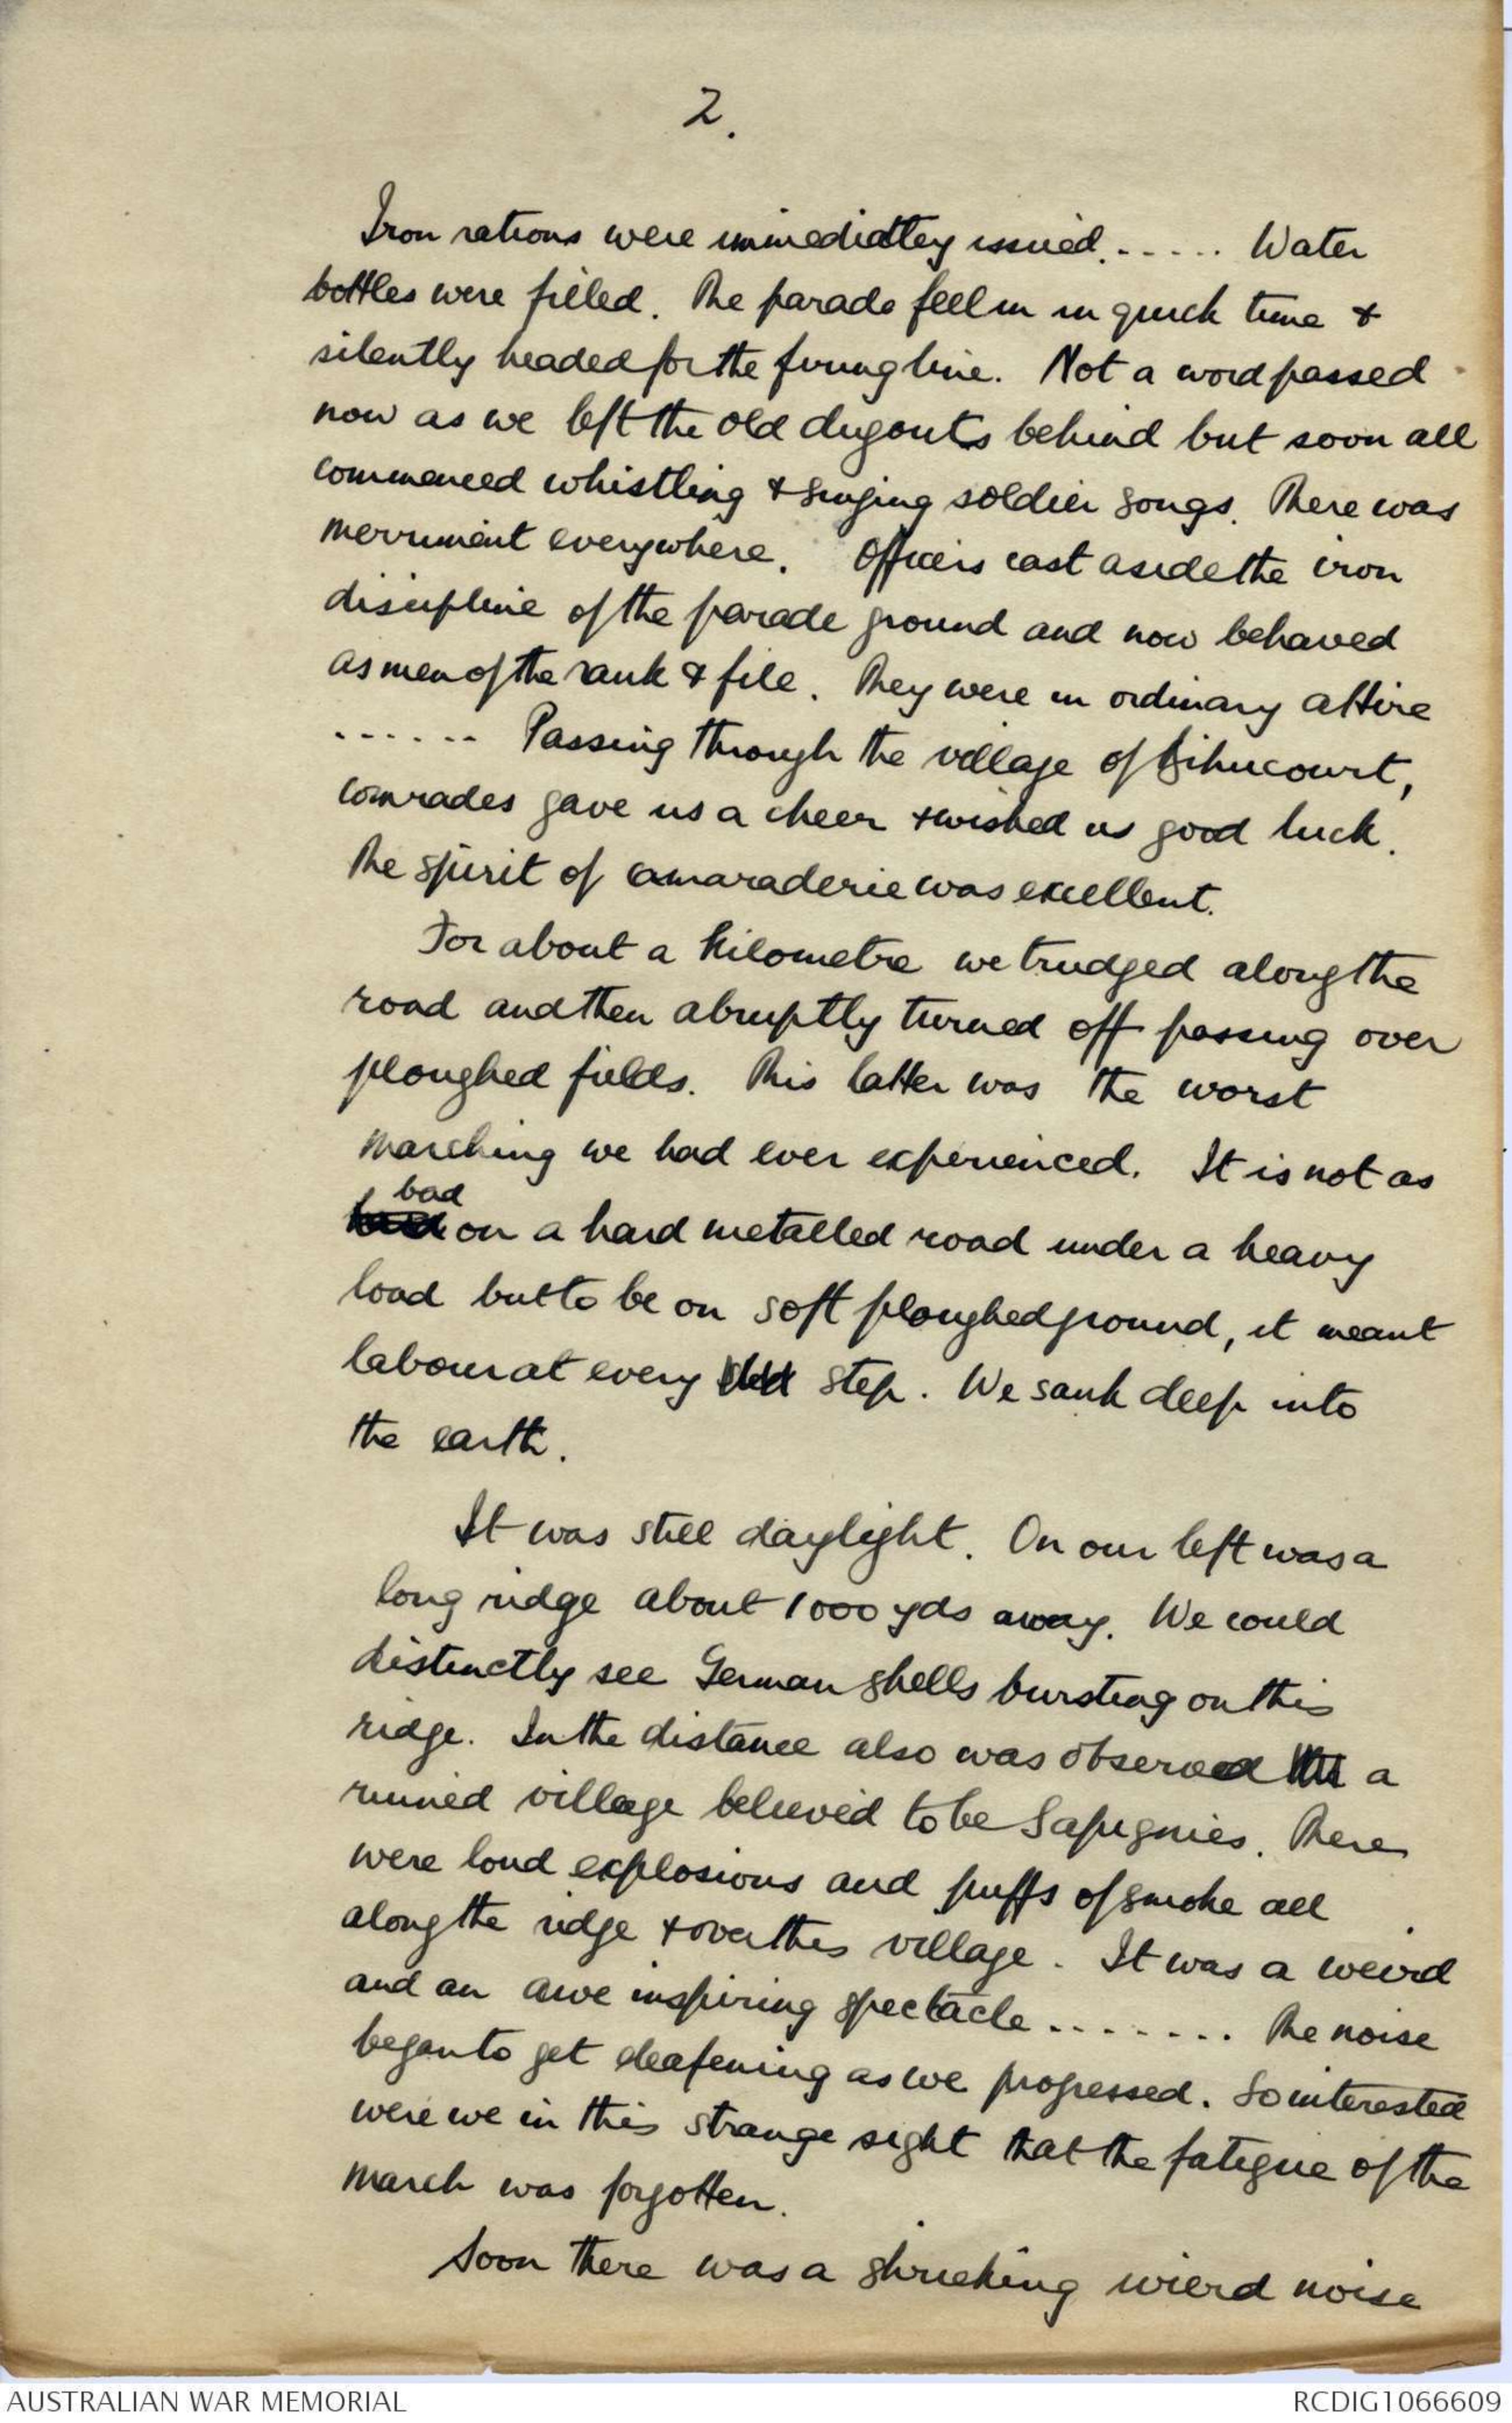 2.
Iron rations were immediatley issued. ..... Water
bottles were filled. The parade feel in in quick time &
silently headed for the firing line. Not a word passed
now as we left the old dugouts behind but soon all
commenced whistling & singing soldier songs. There was
merriment everywhere. Officers cast aside the iron
discipline of the parade ground and now behaved
as men of the rank & file. They were in ordinary attire
...... Passing through the village of Bihucourt,
comrades gave us a cheer & wished us good luck.
The spirit of camaraderie was excellent.
For about a kilometre we trudged along the
road and then abruptly turned off passing over
ploughed fields. This latter was the worst
marching we had ever experienced. It is not as
bad
on a hard metalled road under a heavy
load but to be on soft ploughed ground, it meant
labour at every step. We sank deep into
the earth.
It was still daylight. On our left was a
long ridge about 1000 yds away. We could
distinctly see German shells bursting on this
ridge. In the distance also was observed a
ruined village believed to be Sapignies. There
were loud explosions and puffs of smoke all
along the ridge & over this village. It was a weird
and an awe inspiring spectacle ....... The noise
began to get deafening as we progressed. So interested
were we in this strange sight that the fatigue of the
march was forgotten.
Soon there was a shrieking wierd noise
AUSTRALIAN WAR MEMORIAL
RCDIG1066609